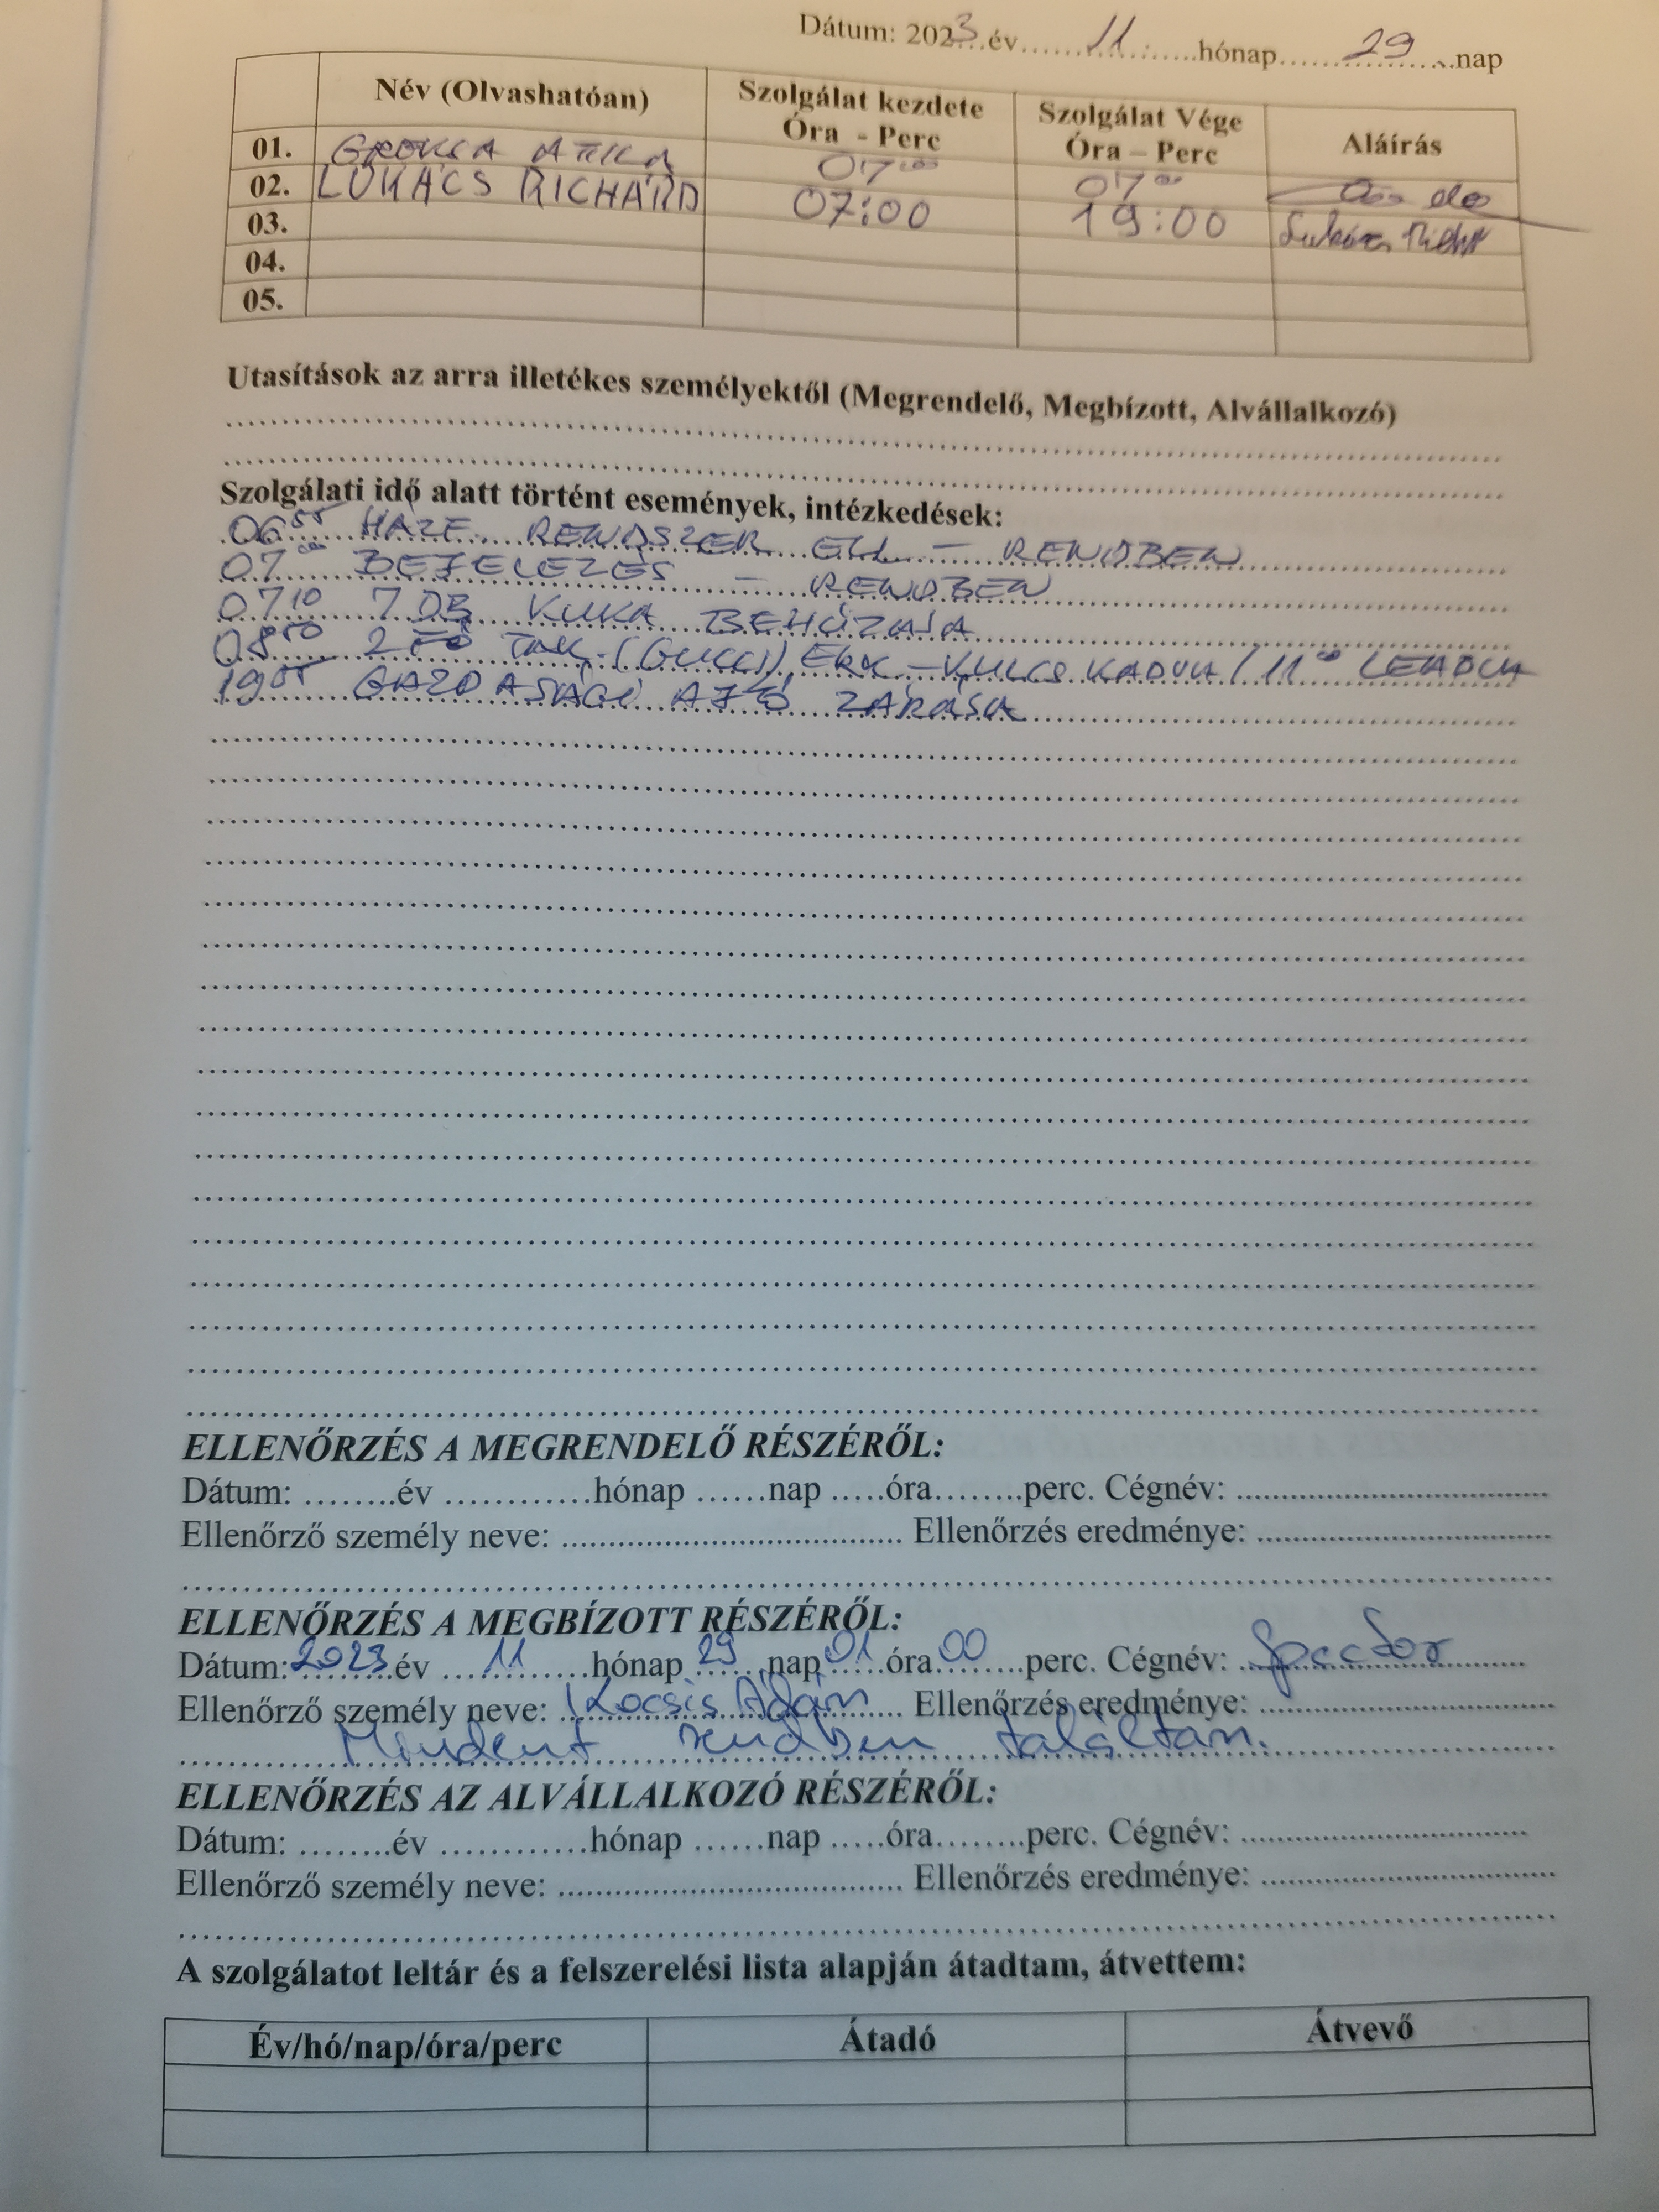 Dátum: 2023 év 11 hónap 29 nap
Név (Olvashatóan) Szolgálat kezdete Óra - Perc Szolgálat Vége Óra – Perc Aláírás
01. ATTILA 07 00 07 00
02. LUKÁCS RICHÁRD 07:00 19:00 Lukács
03.
04.
05.
Utasítások az arra illetékes személyektől (Megrendelő, Megbízott, Alvállalkozó)
Szolgálati idő alatt történt események, intézkedések:
06 55 RENDSZER ELL. – RENDBEN
07 00 – RENDBEN
07 10 7 DB KUKA BEHÚZÁSA
08 50 2 FŐ TAK. (GUCCI) – KULCS KIADVA / 11 00 LEADVA
19 05 GAZDASÁGI AJTÓ ZÁRÁSA
ELLENŐRZÉS A MEGRENDELŐ RÉSZÉRŐL:
Dátum: ........év .............hónap ......nap .....óra........perc. Cégnév:
Ellenőrző személy neve: Ellenőrzés eredménye:
ELLENŐRZÉS A MEGBÍZOTT RÉSZÉRŐL:
Dátum: 2023 év 11 hónap 29 nap 01 óra 00 perc. Cégnév:
Ellenőrző személy neve: Kocsis Ádám Ellenőrzés eredménye:
Mindent rendben találtam.
ELLENŐRZÉS AZ ALVÁLLALKOZÓ RÉSZÉRŐL:
Dátum: ........év .............hónap ......nap .....óra........perc. Cégnév:
Ellenőrző személy neve: Ellenőrzés eredménye:
A szolgálatot leltár és a felszerelési lista alapján átadtam, átvettem:
Év/hó/nap/óra/perc Átadó Átvevő